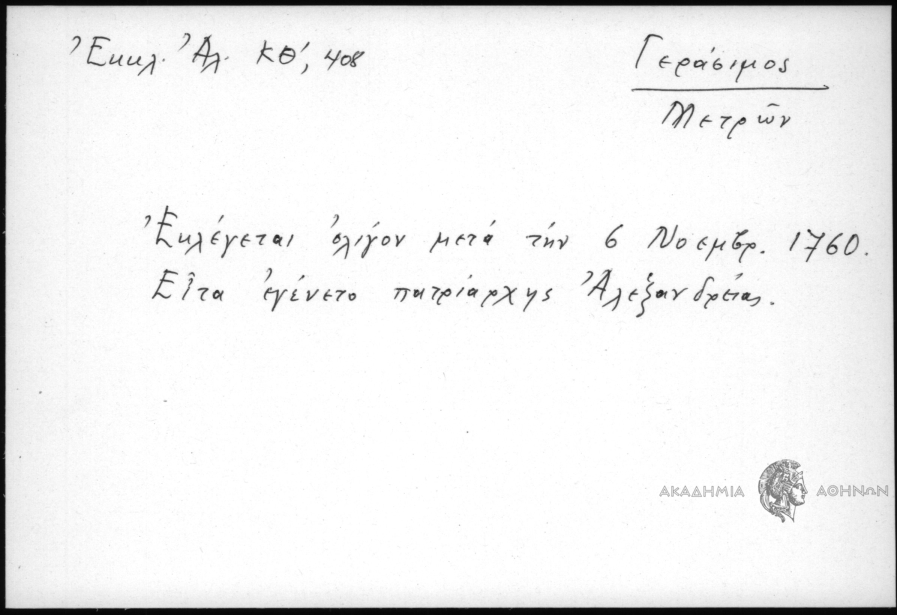 Ἐκκλ. Ἀλ. ΚΘ', 408
Γεράσιμος
Μετρῶν
Ἐκλέγεται ὀλίγον μετά τήν 6 Νοεμβρ. 1760.
Εἶτα ἐγένετο πατριάρχης Ἀλεξανδρείας.
ΑΚΑΔΗΜΙΑ ΑΘΗΝΩΝ